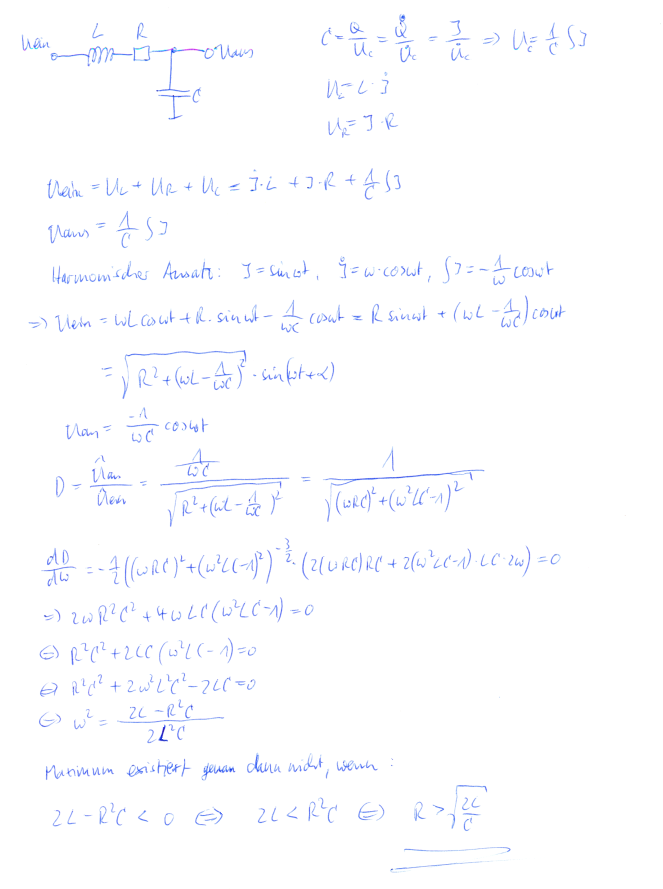 Uein L R Uaus
C
C = Q/U_C = Q̇/U̇_C = J/U̇_C ⇒ U_C = 1/C ∫J
U_L = L · J̇
U_R = J · R
Uein = U_L + U_R + U_C = J̇·L + J·R + 1/C ∫J
Uaus = 1/C ∫J
Harmonischer Ansatz: J = sin ωt, J̇ = ω·cos ωt, ∫J = -1/ω cos ωt
⇒ Uein = ωL cos ωt + R · sin ωt - 1/(ωC) cos ωt = R sin ωt + (ωL - 1/(ωC)) cos ωt
= √(R² + (ωL - 1/(ωC))²) · sin(ωt + α)
Uaus = -1/(ωC) cos ωt
D = Ûaus/Ûein = (1/(ωC))/√(R² + (ωL - 1/(ωC))²) = 1/√((ωRC)² + (ω²LC-1)²)
dD/dω = -1/2 ((ωRC)² + (ω²LC-1)²)^(-3/2) · (2(ωRC)RC + 2(ω²LC-1)·LC·2ω) = 0
⇒ 2ωR²C² + 4ωLC(ω²LC-1) = 0
⇔ R²C² + 2LC(ω²LC-1) = 0
⇔ R²C² + 2ω²L²C² - 2LC = 0
⇔ ω² = (2L - R²C)/(2L²C)
Maximum existiert genau dann nicht, wenn:
2L - R²C < 0 ⇔ 2L < R²C ⇔ R > √(2L/C)